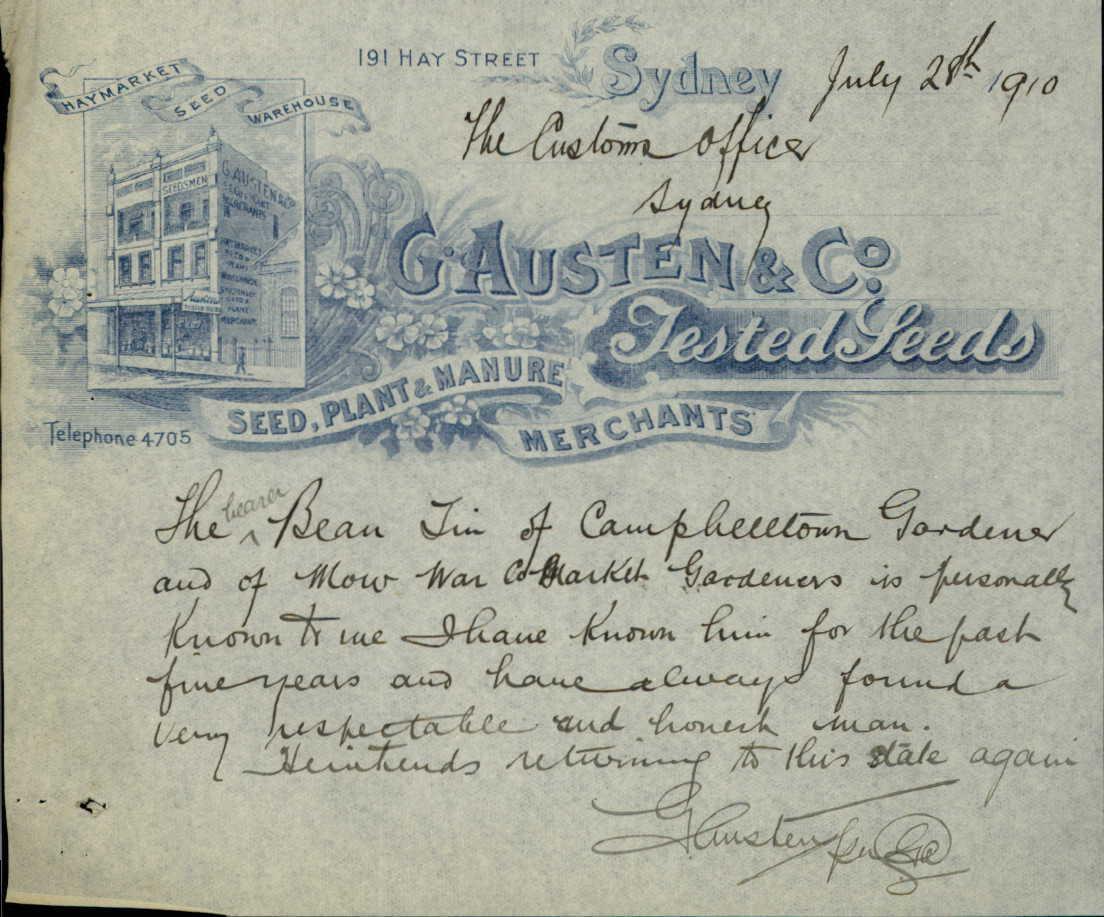 HAYMARKET SEED WAREHOUSE
191 HAY STREET Sydney July 28th 1910
The Customs Officer
Sydney
SEEDSMEN
G. AUSTEN & Co
G. AUSTEN & Co.
Tested Seeds
SEED, PLANT & MANURE
MERCHANTS
Telephone 4705
The bearer Bean Tin of Campbelltown Gardener
and of Mow War Co Market Gardeners is personally
Known to me I have Known him for the past
five years and have always found a
very respectable and honest man.
He intends returning to this state again
G Austen